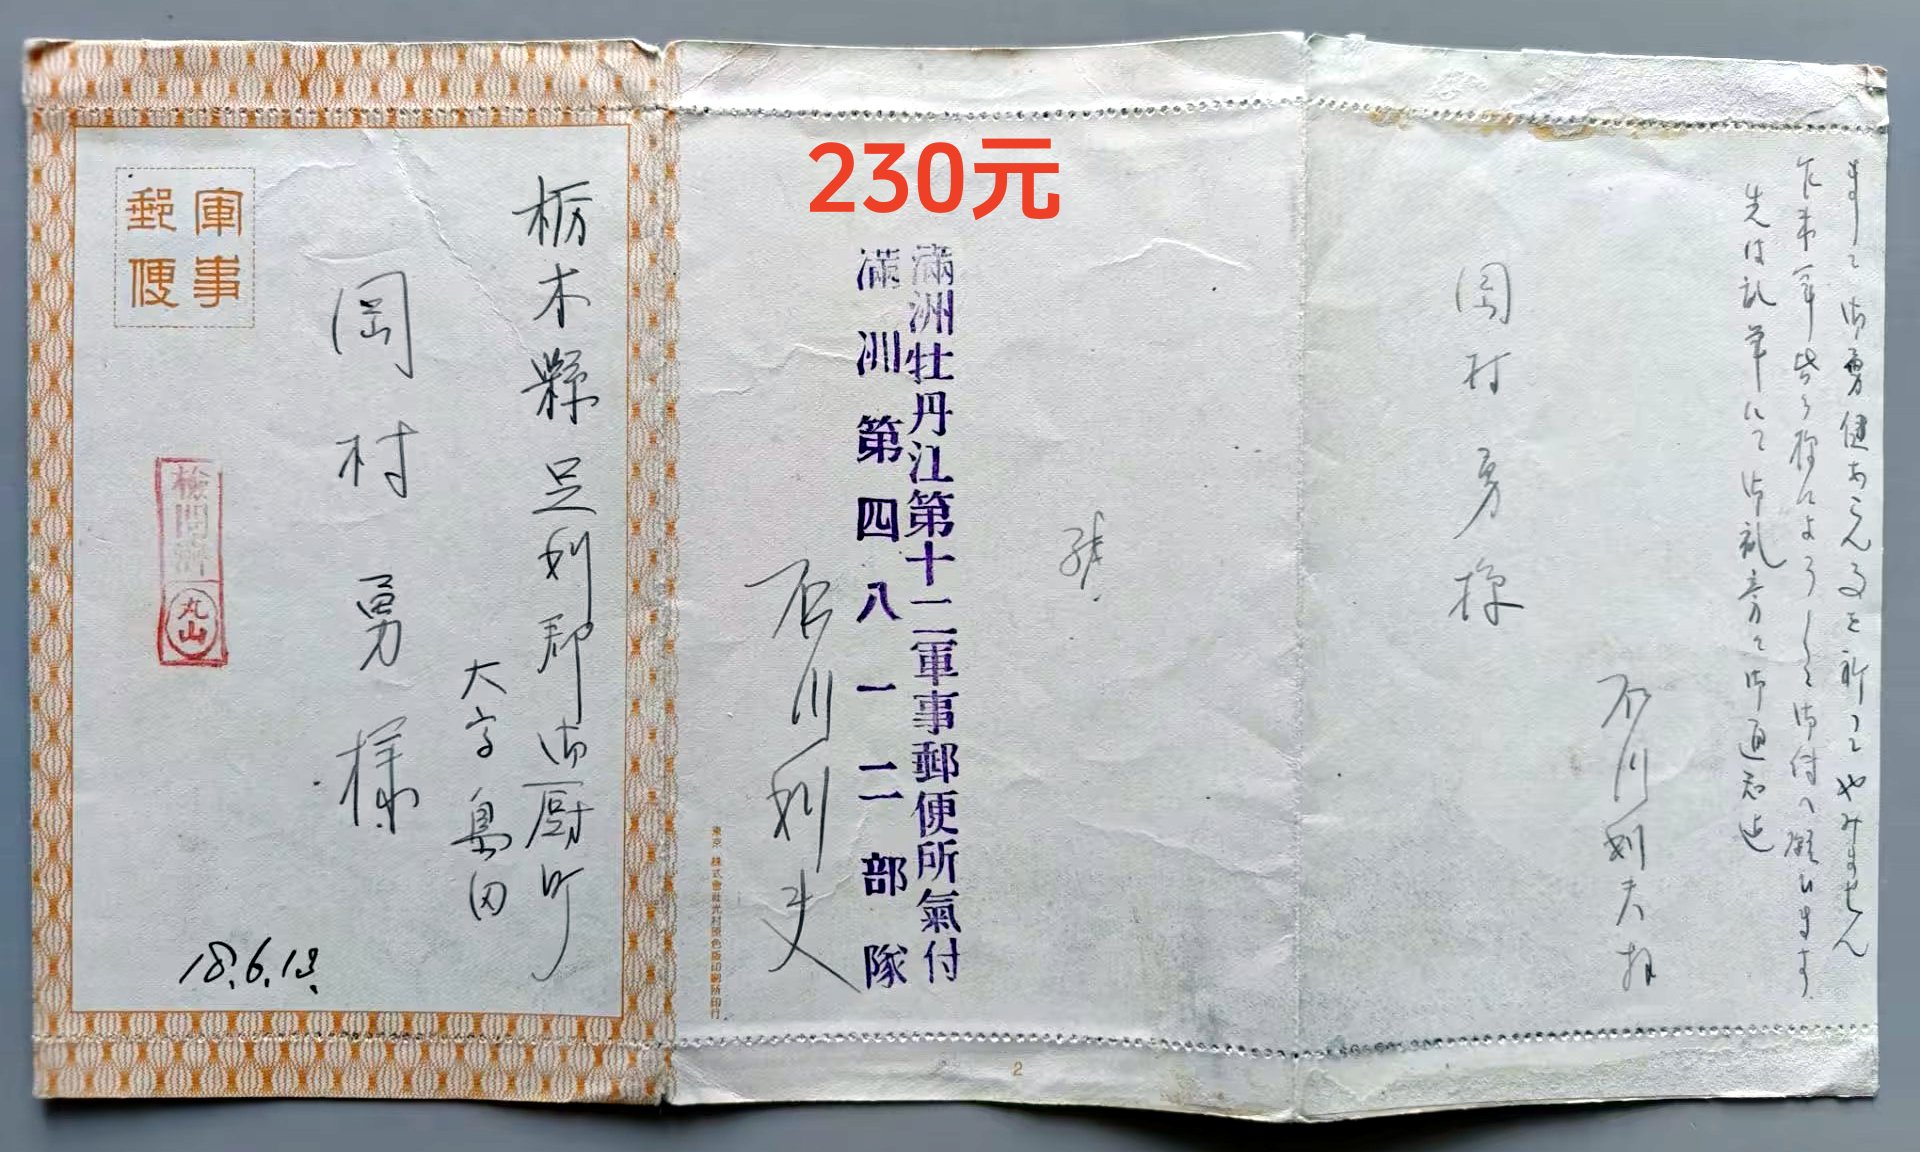 軍事
郵便
栃木縣足利郡御厨町
大字島田
岡村勇様
檢閲済
丸山
18.6.13.
230元
滿洲牡丹江第十二軍事郵便所氣付
滿洲第四八一二部隊
石川利夫
東京 株式會社光村原色版印刷所印行
2
ますゝ御勇健あらん事を祈ってやみません
乍末筆皆々様によろしく御付へ願ひます
先は乱筆にて御礼旁々御通知迄
石川利夫拝
岡村勇様